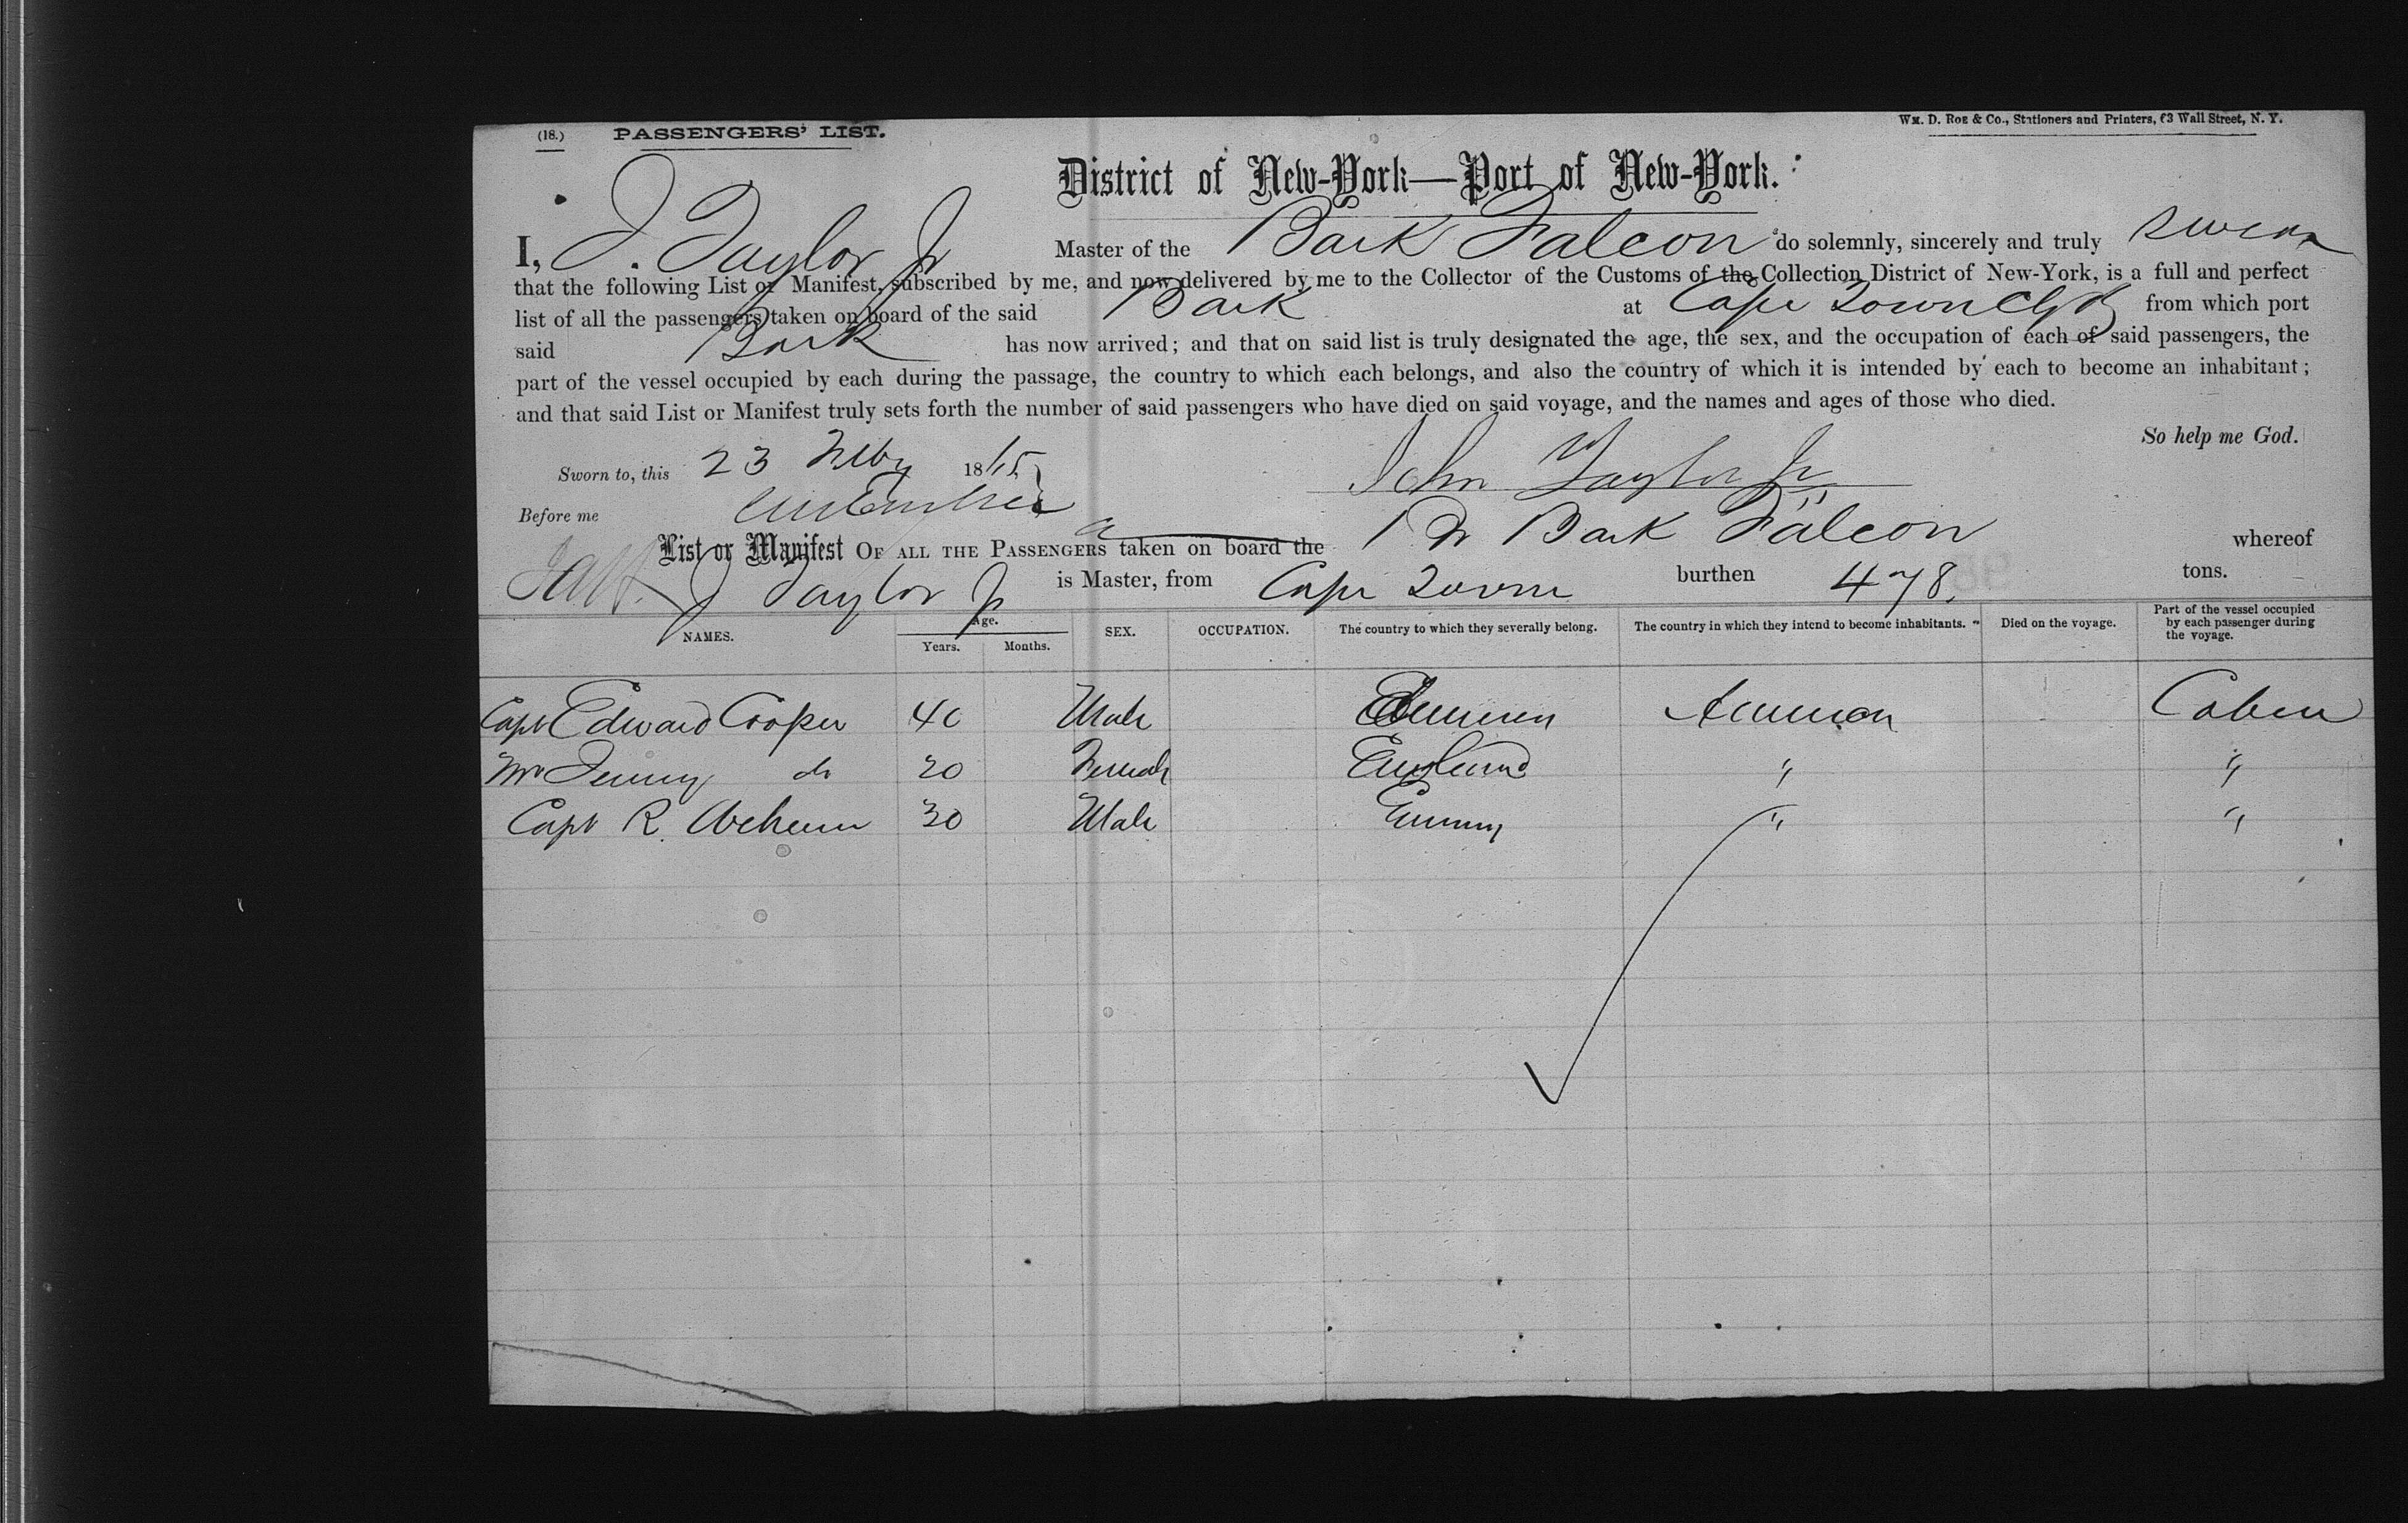 (18.) PASSENGERS' LIST.
Wm. D. Roe & Co., Stationers and Printers, 63 Wall Street, N. Y.
District of New-York—Port of New-York.
I, J. Taylor Jr Master of the Bark Falcon do solemnly, sincerely and truly swear
that the following List or Manifest, subscribed by me, and now delivered by me to the Collector of the Customs of the Collection District of New-York, is a full and perfect
list of all the passengers taken on board of the said Bark at Cape Town from which port
said Bark has now arrived; and that on said list is truly designated the age, the sex, and the occupation of each of said passengers, the
part of the vessel occupied by each during the passage, the country to which each belongs, and also the country of which it is intended by each to become an inhabitant;
and that said List or Manifest truly sets forth the number of said passengers who have died on said voyage, and the names and ages of those who died.
So help me God.
Sworn to, this 23 18
John Taylor Jr
Before me
List or Manifest OF ALL THE PASSENGERS taken on board the Bark Falcon whereof
J Taylor Jr is Master, from Cape Town burthen 478 tons.
NAMES. Age. Years. Months. SEX. OCCUPATION. The country to which they severally belong. The country in which they intend to become inhabitants. Died on the voyage. Part of the vessel occupied by each passenger during the voyage.
Capt Edward Cooper 40 Male American Cabin
Jenny do 20 Female England " "
Capt R. 30 Male " "